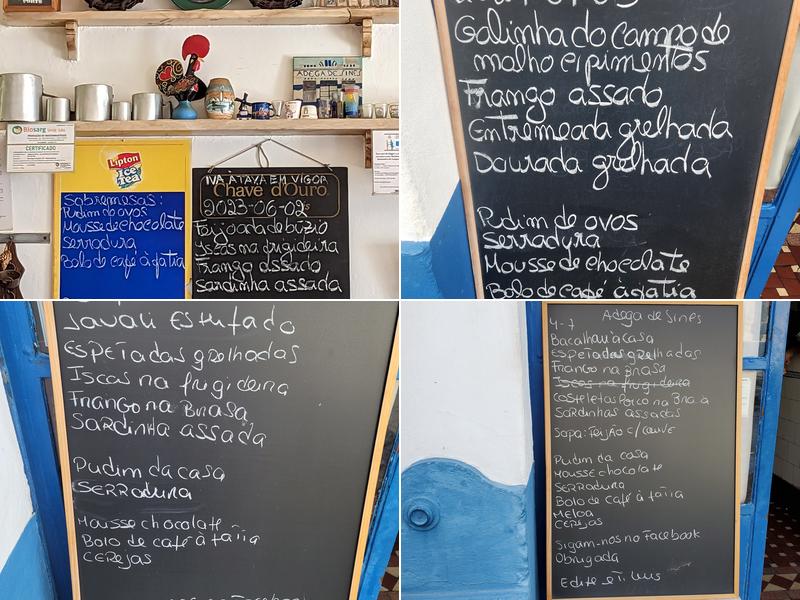 ADEGA DE SINES
Biosarg
CERTIFICADO
Lipton
Ice Tea
Sobremesas:
Pudim do ovos
Mousse de chocolate
Serradura
Bolo de café à fatia
NA ATAVA EM VIGOR
Chave d'Ouro
2023-06-02
Feijoada de búzio
Iscas na frigideira
Frango assado
Sardinha assada
Galinha do campo de
molho e pimentos
Frango assado
Entremeada grelhada
Dourada grelhada
Pudim de ovos
Serradura
Mousse de chocolate
Bolo de café à fatia
Javali Estufado
Espetadas grelhadas
Iscas na frigideira
Frango na Brasa
Sardinha assada
Pudim da casa
SERRADURA
Mousse chocolate
Bolo de café à fatia
CEREJAS
Facebook
Adega de Sines
4-7
Bacalhau à casa
Espetadas grelhadas
Frango na Brasa
Iscas na frigideira
Costeletas Porco na Brasa
Sardinhas assadas
Sopa: Feijão c/ couve
Pudim da casa
Mousse chocolate
SERRADURA
Bolo de café à fatia
MELOA
CEREJAS
Sigam-nos no Facebook
Obrigada
Edite e T. Luis